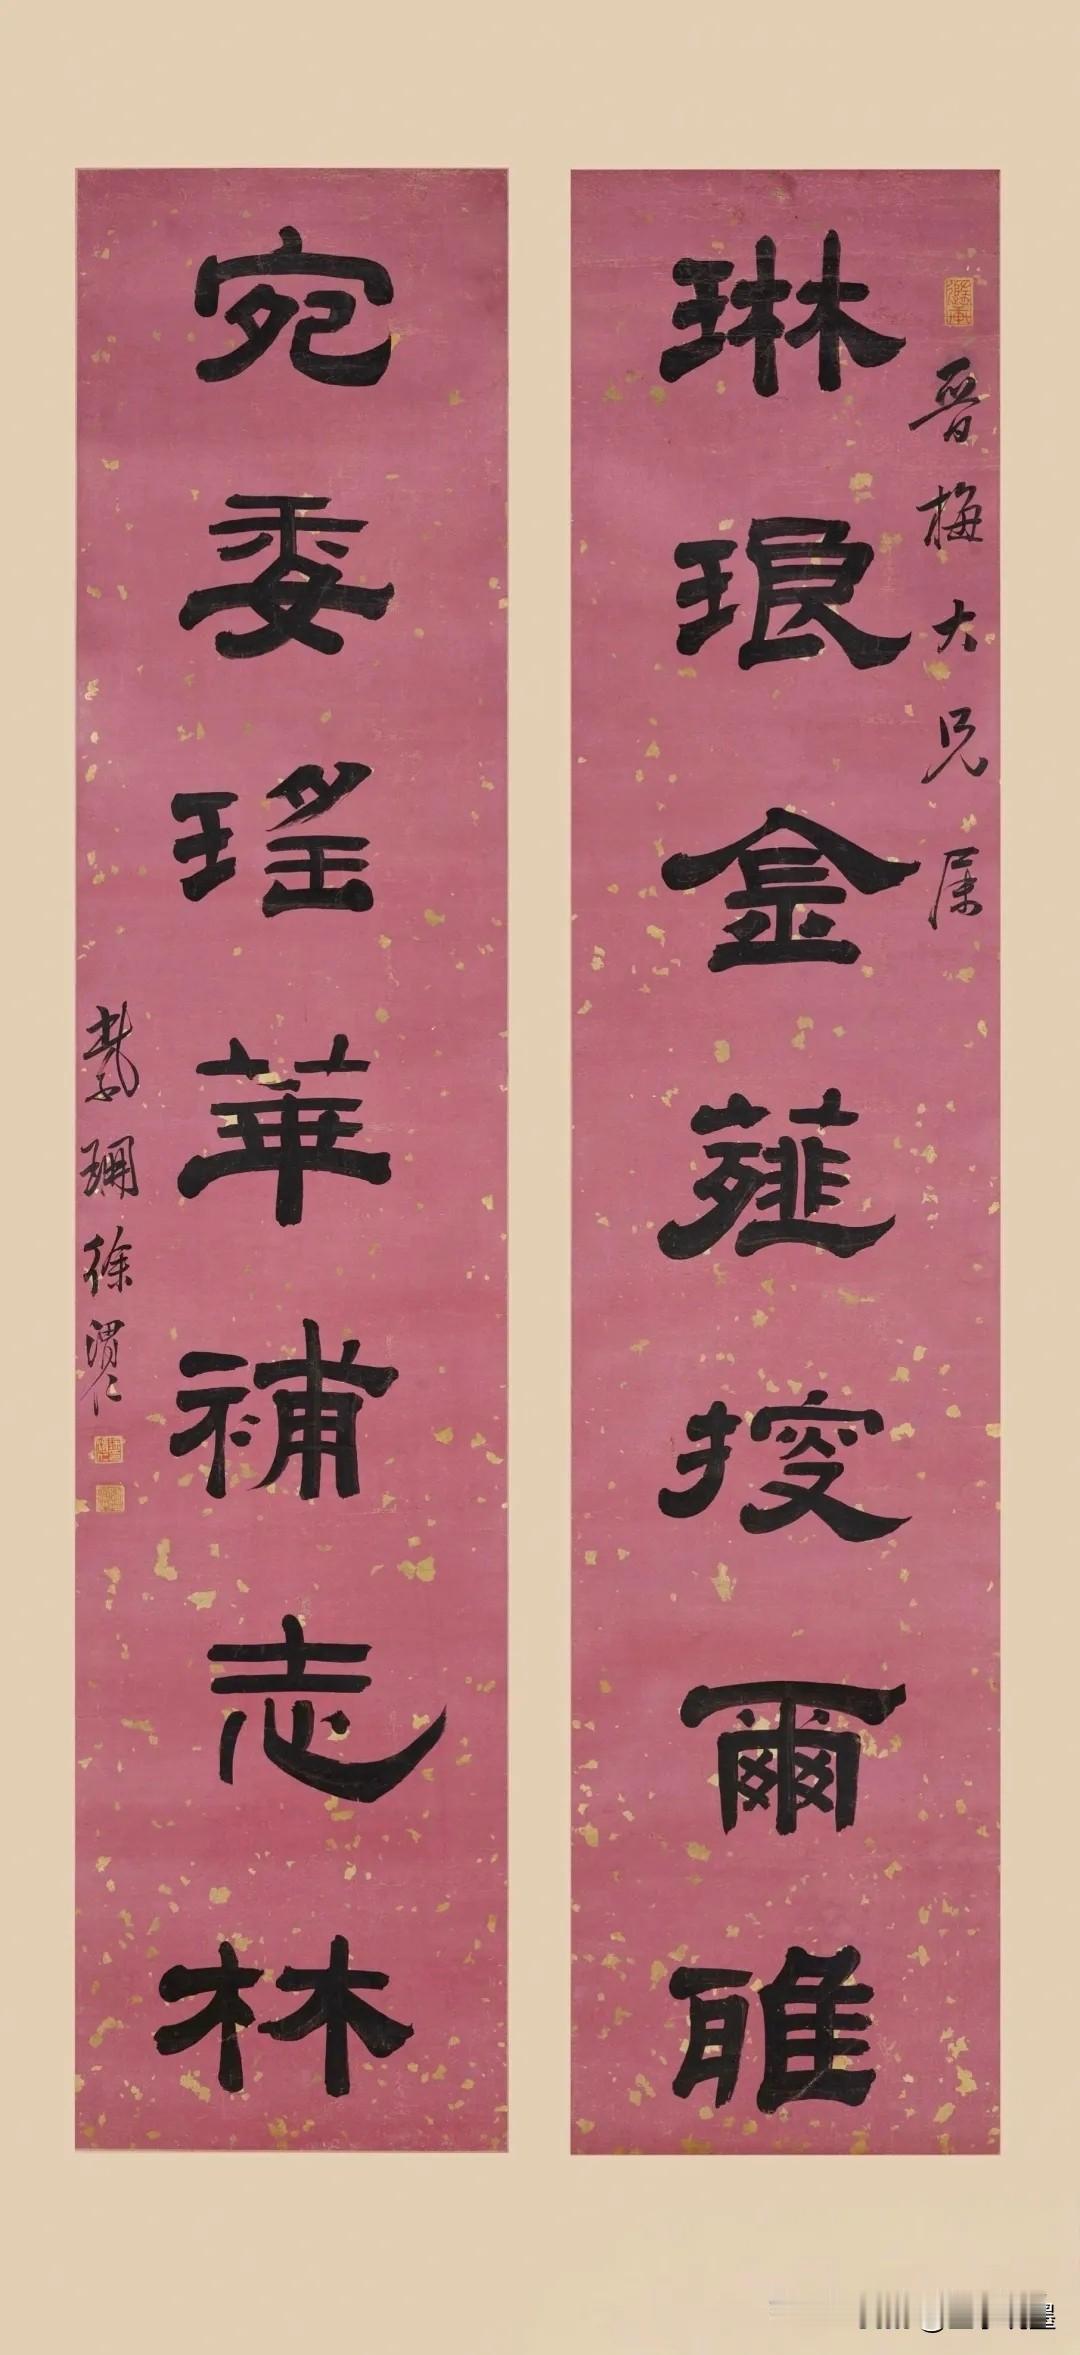 晉梅大兄屬
琳琅金薤搜爾雅
宛委瑤華補志林
紫珊徐渭仁